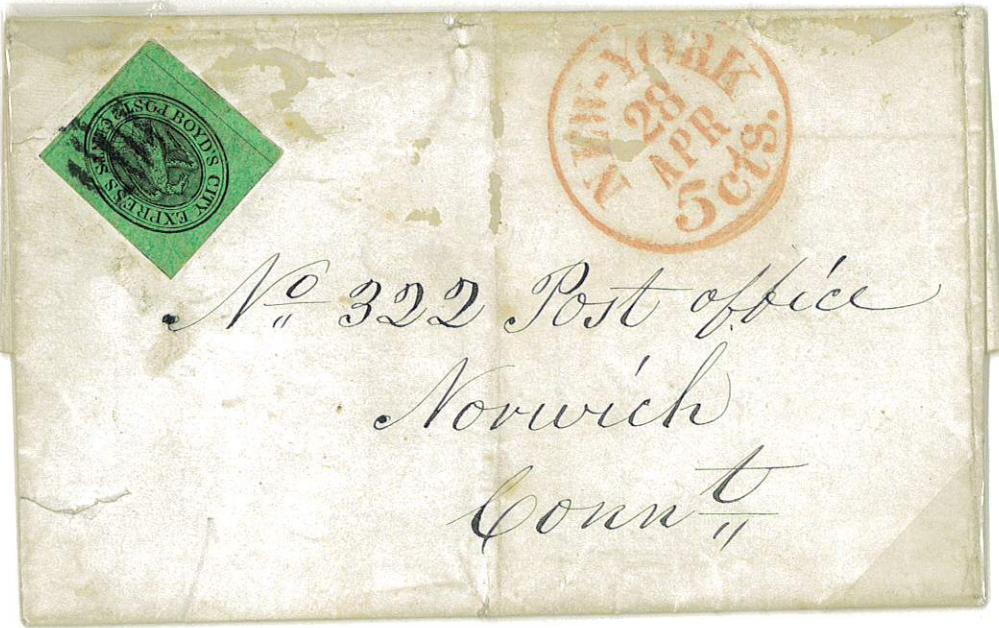 BOYD'S CITY EXPRESS POST
NEW-YORK
28
APR
5 cts.
No 322 Post office
Norwich
Connt